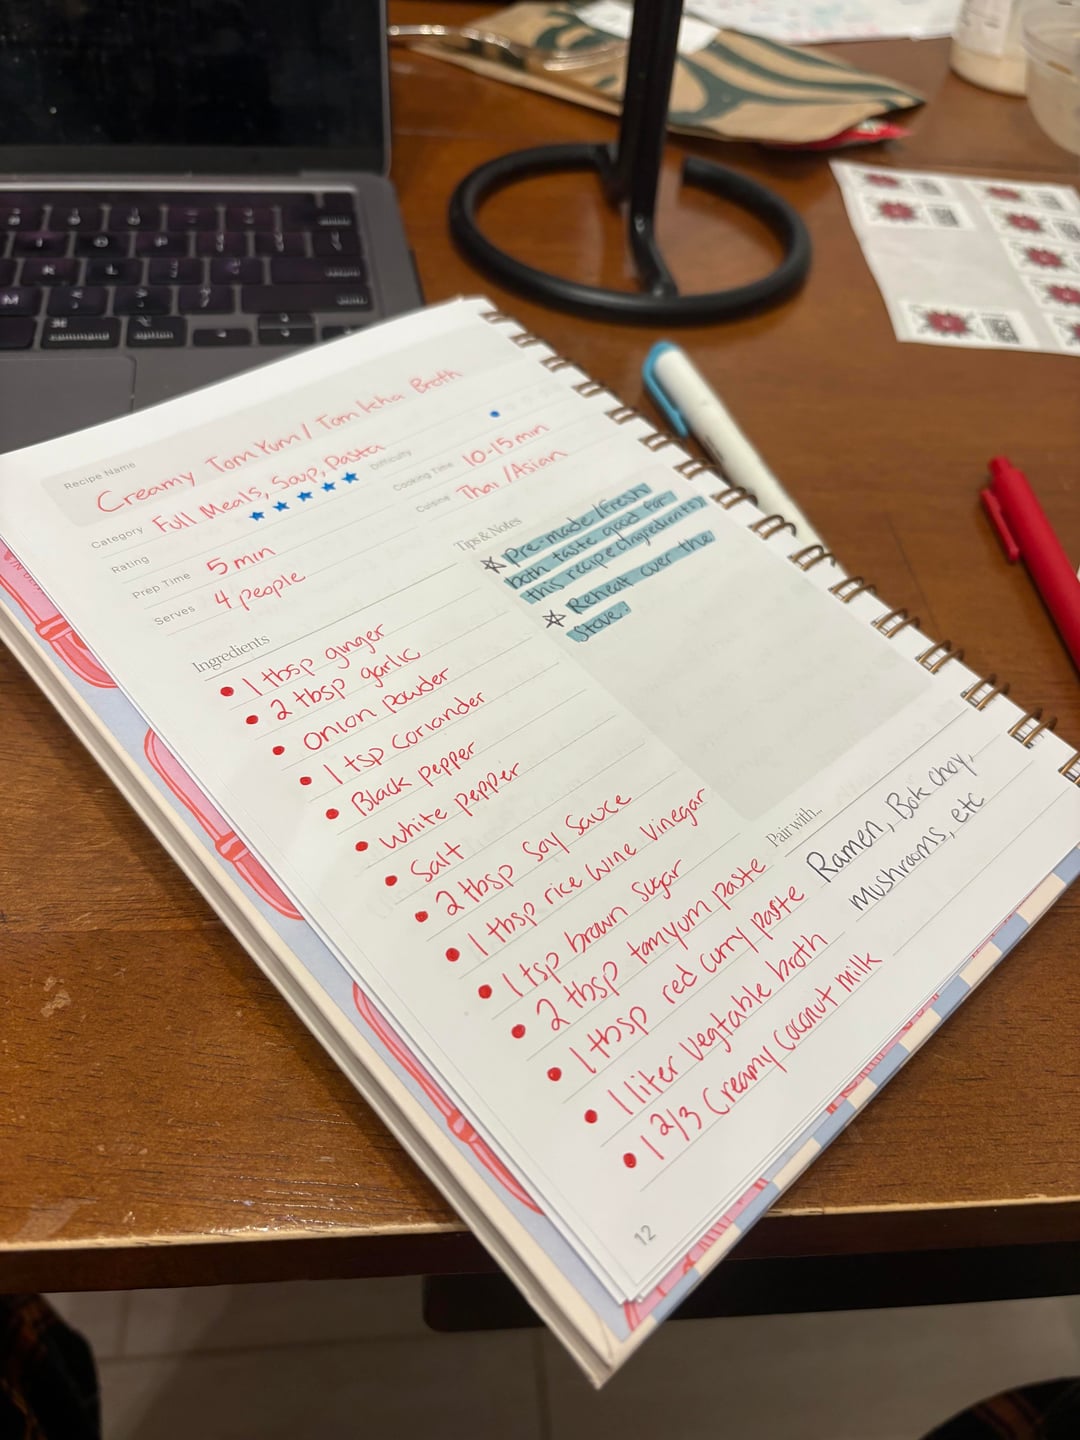 command
option
Recipe Name
Creamy Tom Yum / Tom Kha Broth
Category Full Meals, Soup, Pasta
Rating
Difficulty
Prep Time 5 min
Cooking Time 10-15 min
Serves 4 people
Cuisine Thai / Asian
Ingredients
1 tbsp ginger
2 tbsp garlic
onion powder
1 tsp coriander
Black pepper
white pepper
Salt
2 tbsp soy sauce
1 tbsp rice wine vinegar
1 tsp brown sugar
2 tbsp tomyum paste
1 tbsp red curry paste
1 liter Vegtable broth
1 2/3 Creamy coconut milk
Tips & Notes
Pre-made / fresh
both taste good for
this recipe (ingredients)
Reheat over the
Stove.
Pair with...
Ramen, Bok choy,
mushrooms, etc
12